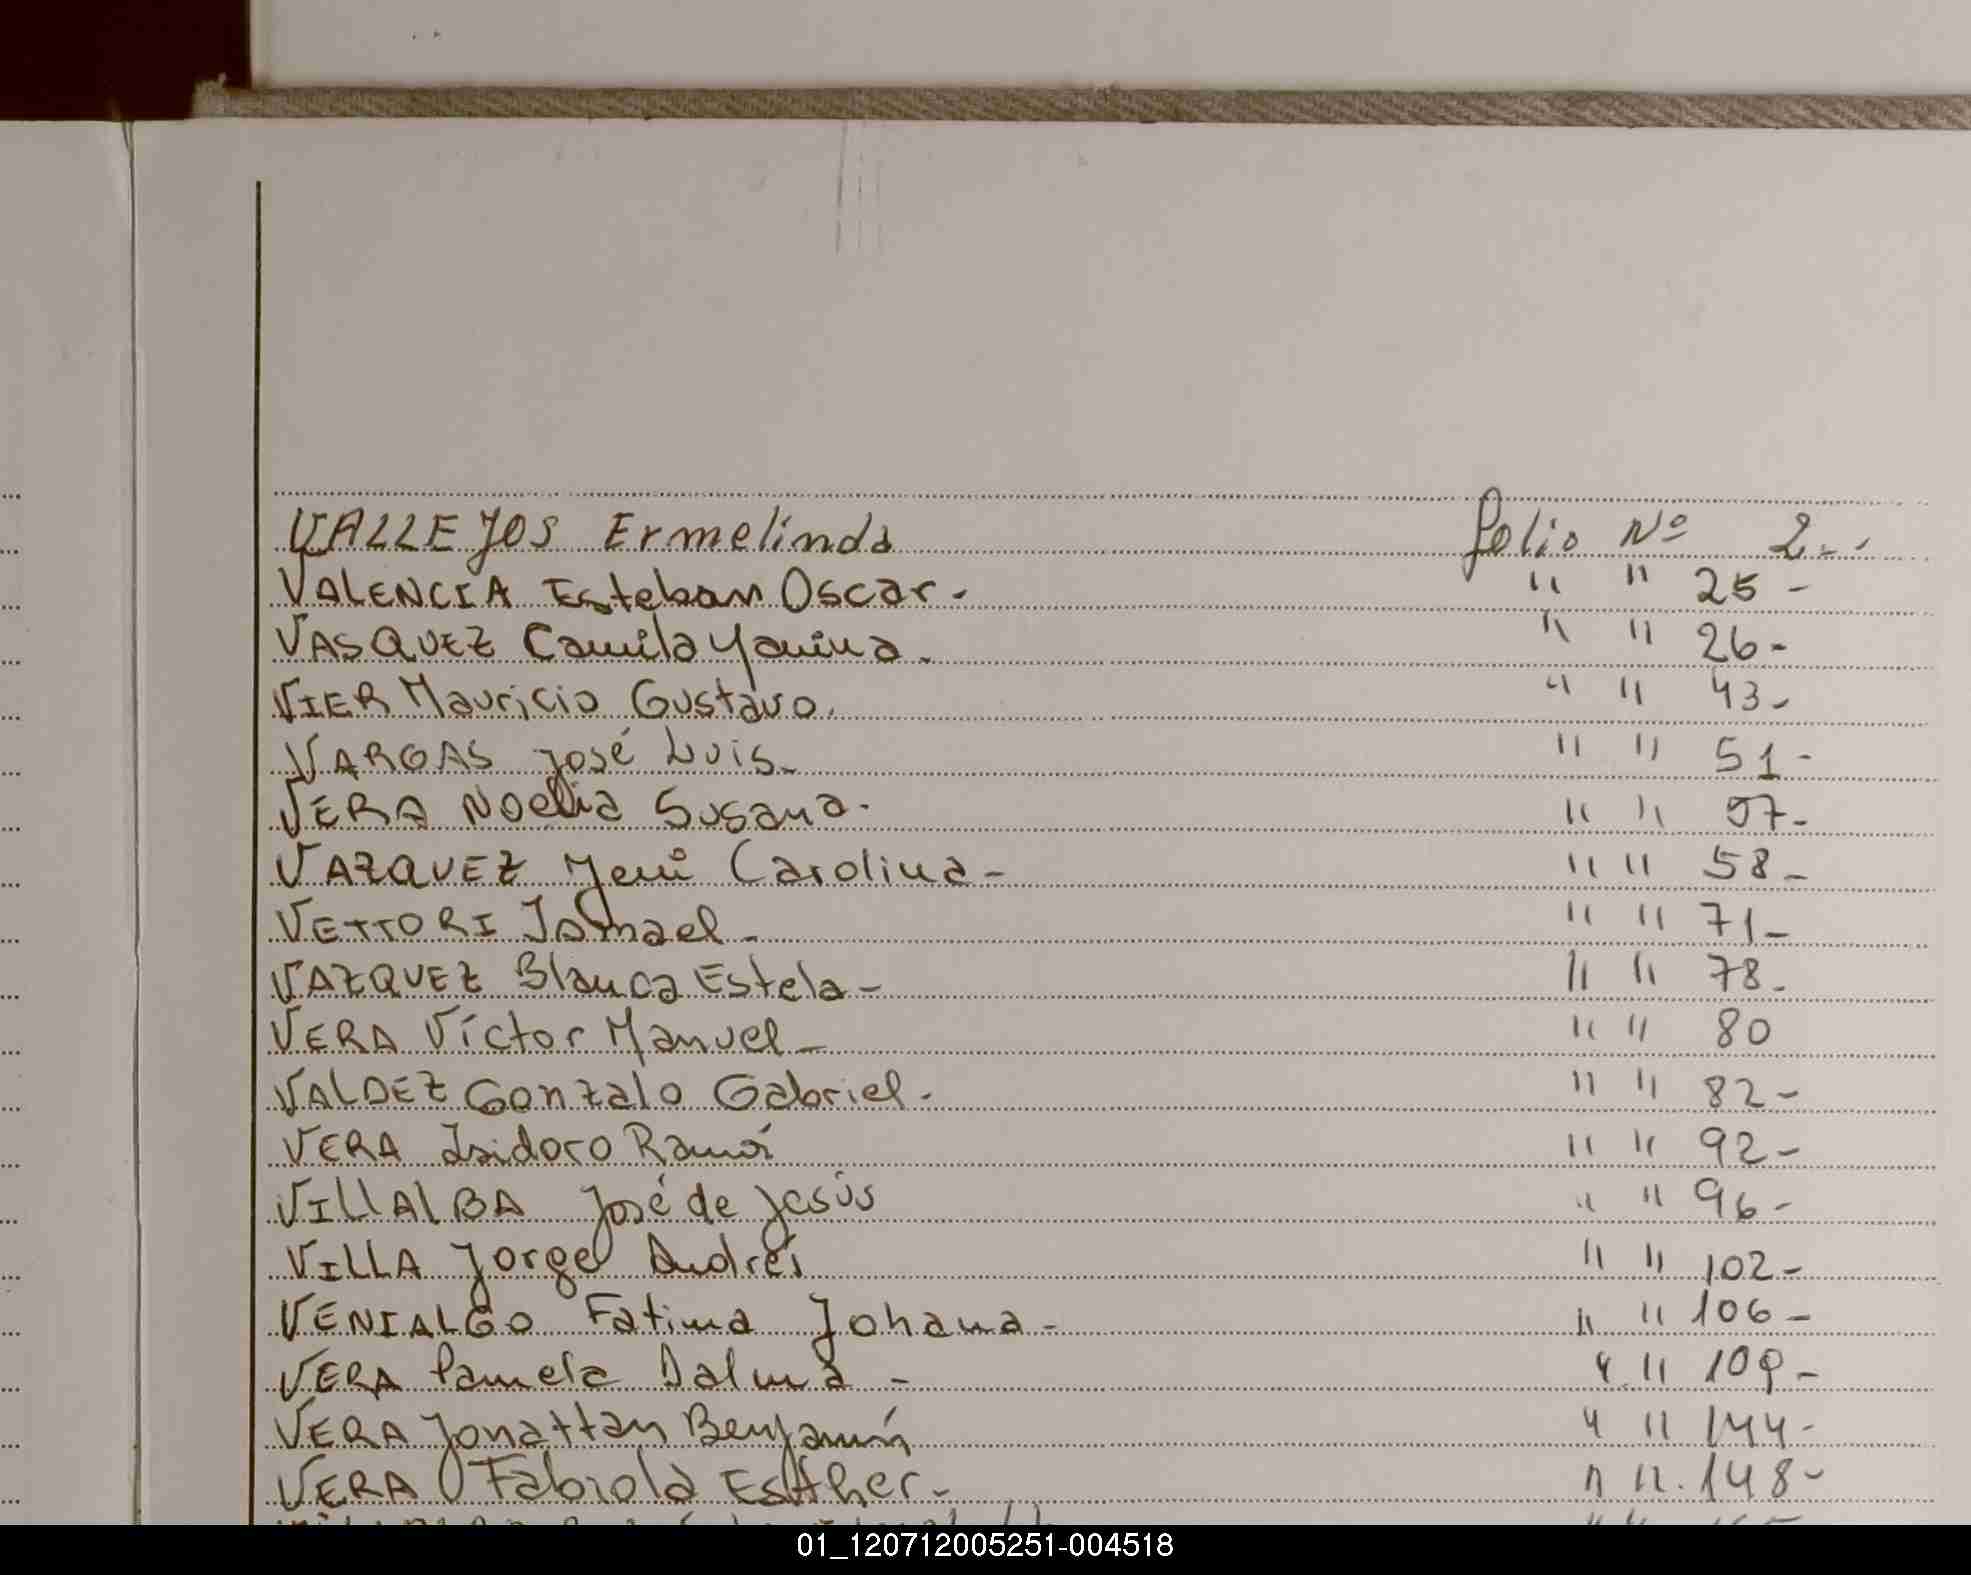 VALLEJOS Ermelinda folio Nº 2--
VALENCIA Esteban Oscar - " " 25 -
VASQUEZ Camila Yanina - " " 26 -
VIER Mauricio Gustavo. " " 43 -
VARGAS José Luis - " " 51 -
VERA Noelia Susana - " " 57 -
VAZQUEZ Yeni Carolina - " " 58 -
VETTORI Ismael - " " 71 -
VAZQUEZ Blanca Estela - " " 78 -
VERA Víctor Manuel - " " 80
VALDEZ Gonzalo Gabriel - " " 82 -
VERA Isidoro Ramón " " 92 -
VILLALBA José de Jesús " " 96 -
VILLA Jorge Andrés " " 102 -
VENIALGO Fatima Johana - " " 106 -
VERA Pamela Dalma - " " 109 -
VERA Jonattan Benjamín " " 144 -
VERA Fabiola Esther - " " 148 -
01_120712005251-004518